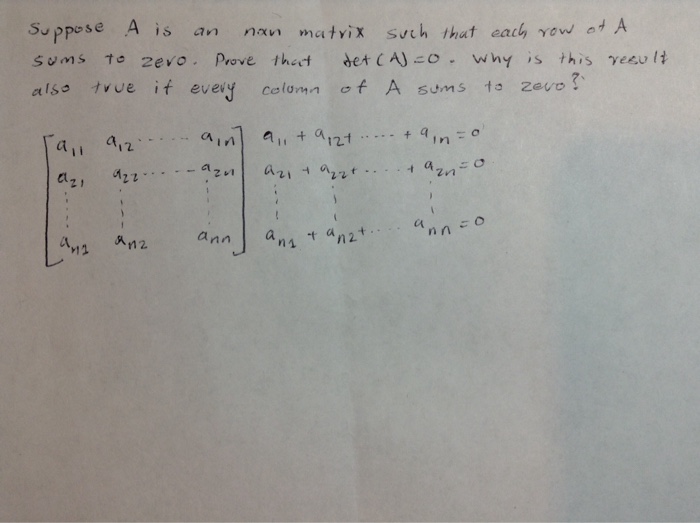 Suppose A is an nxn matrix such that each row of A
sums to zero. Prove that det(A)=0. Why is this result
also true if every column of A sums to zero?
a11 a12 ...... a1n a11 + a12+ ..... + a1n = 0
a21 a22.... - a2n a21 + a22+ ..... + a2n = 0
an1 an2 ann an1 + an2+.... ann = 0